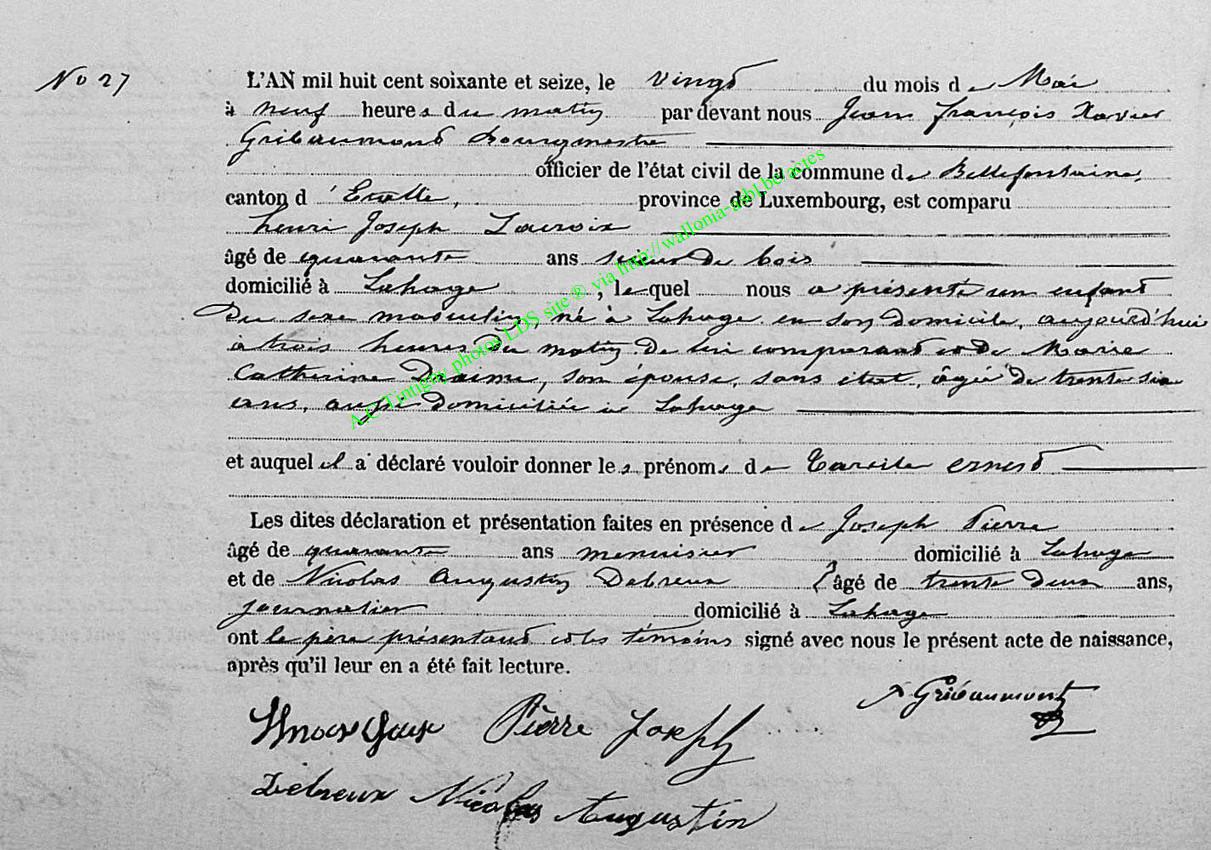 No 27
L'AN mil huit cent soixante et seize, le vingt du mois de Mai
à neuf heures du matin par devant nous Jean françois Xavier
Gribaumont bourgmestre
officier de l'état civil de la commune de Bellefontaine,
canton d'Etalle, province de Luxembourg, est comparu
henri Joseph Lacroix
âgé de quarante ans scieur de bois
domicilié à Lahage, lequel nous a présenté un enfant
du sexe masculin, né à Lahage en son domicile, aujourd'hui
à trois heures du matin de lui comparant et de Marie
Catherine, son épouse, sans état, âgée de trente six
ans, aussi domiciliée à Lahage
et auquel il a déclaré vouloir donner les prénoms de ernest
Les dites déclaration et présentation faites en présence de Joseph Pierre
âgé de quarante ans menuisier domicilié à Lahage
et de Nicolas Augustin Debreux âgé de trente deux ans,
journalier domicilié à Lahage
ont le père présentant et les témoins signé avec nous le présent acte de naissance,
après qu'il leur en a été fait lecture.
X Gribaumont
Pierre Joseph
Debreux Nicolas Augustin
A.C. Tintigny photos LDS site ® via http://wallonia-asbl.be/actes